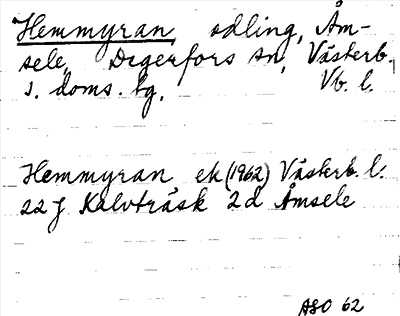 Hemmyran, odling, Åm-
sele, Degerfors sn, Västerb.
s. doms. bg, Vb. l.
Hemmyran ek (1962) Västerb. l.
22 J Kalvträsk 2 d Åmsele
ASO 62